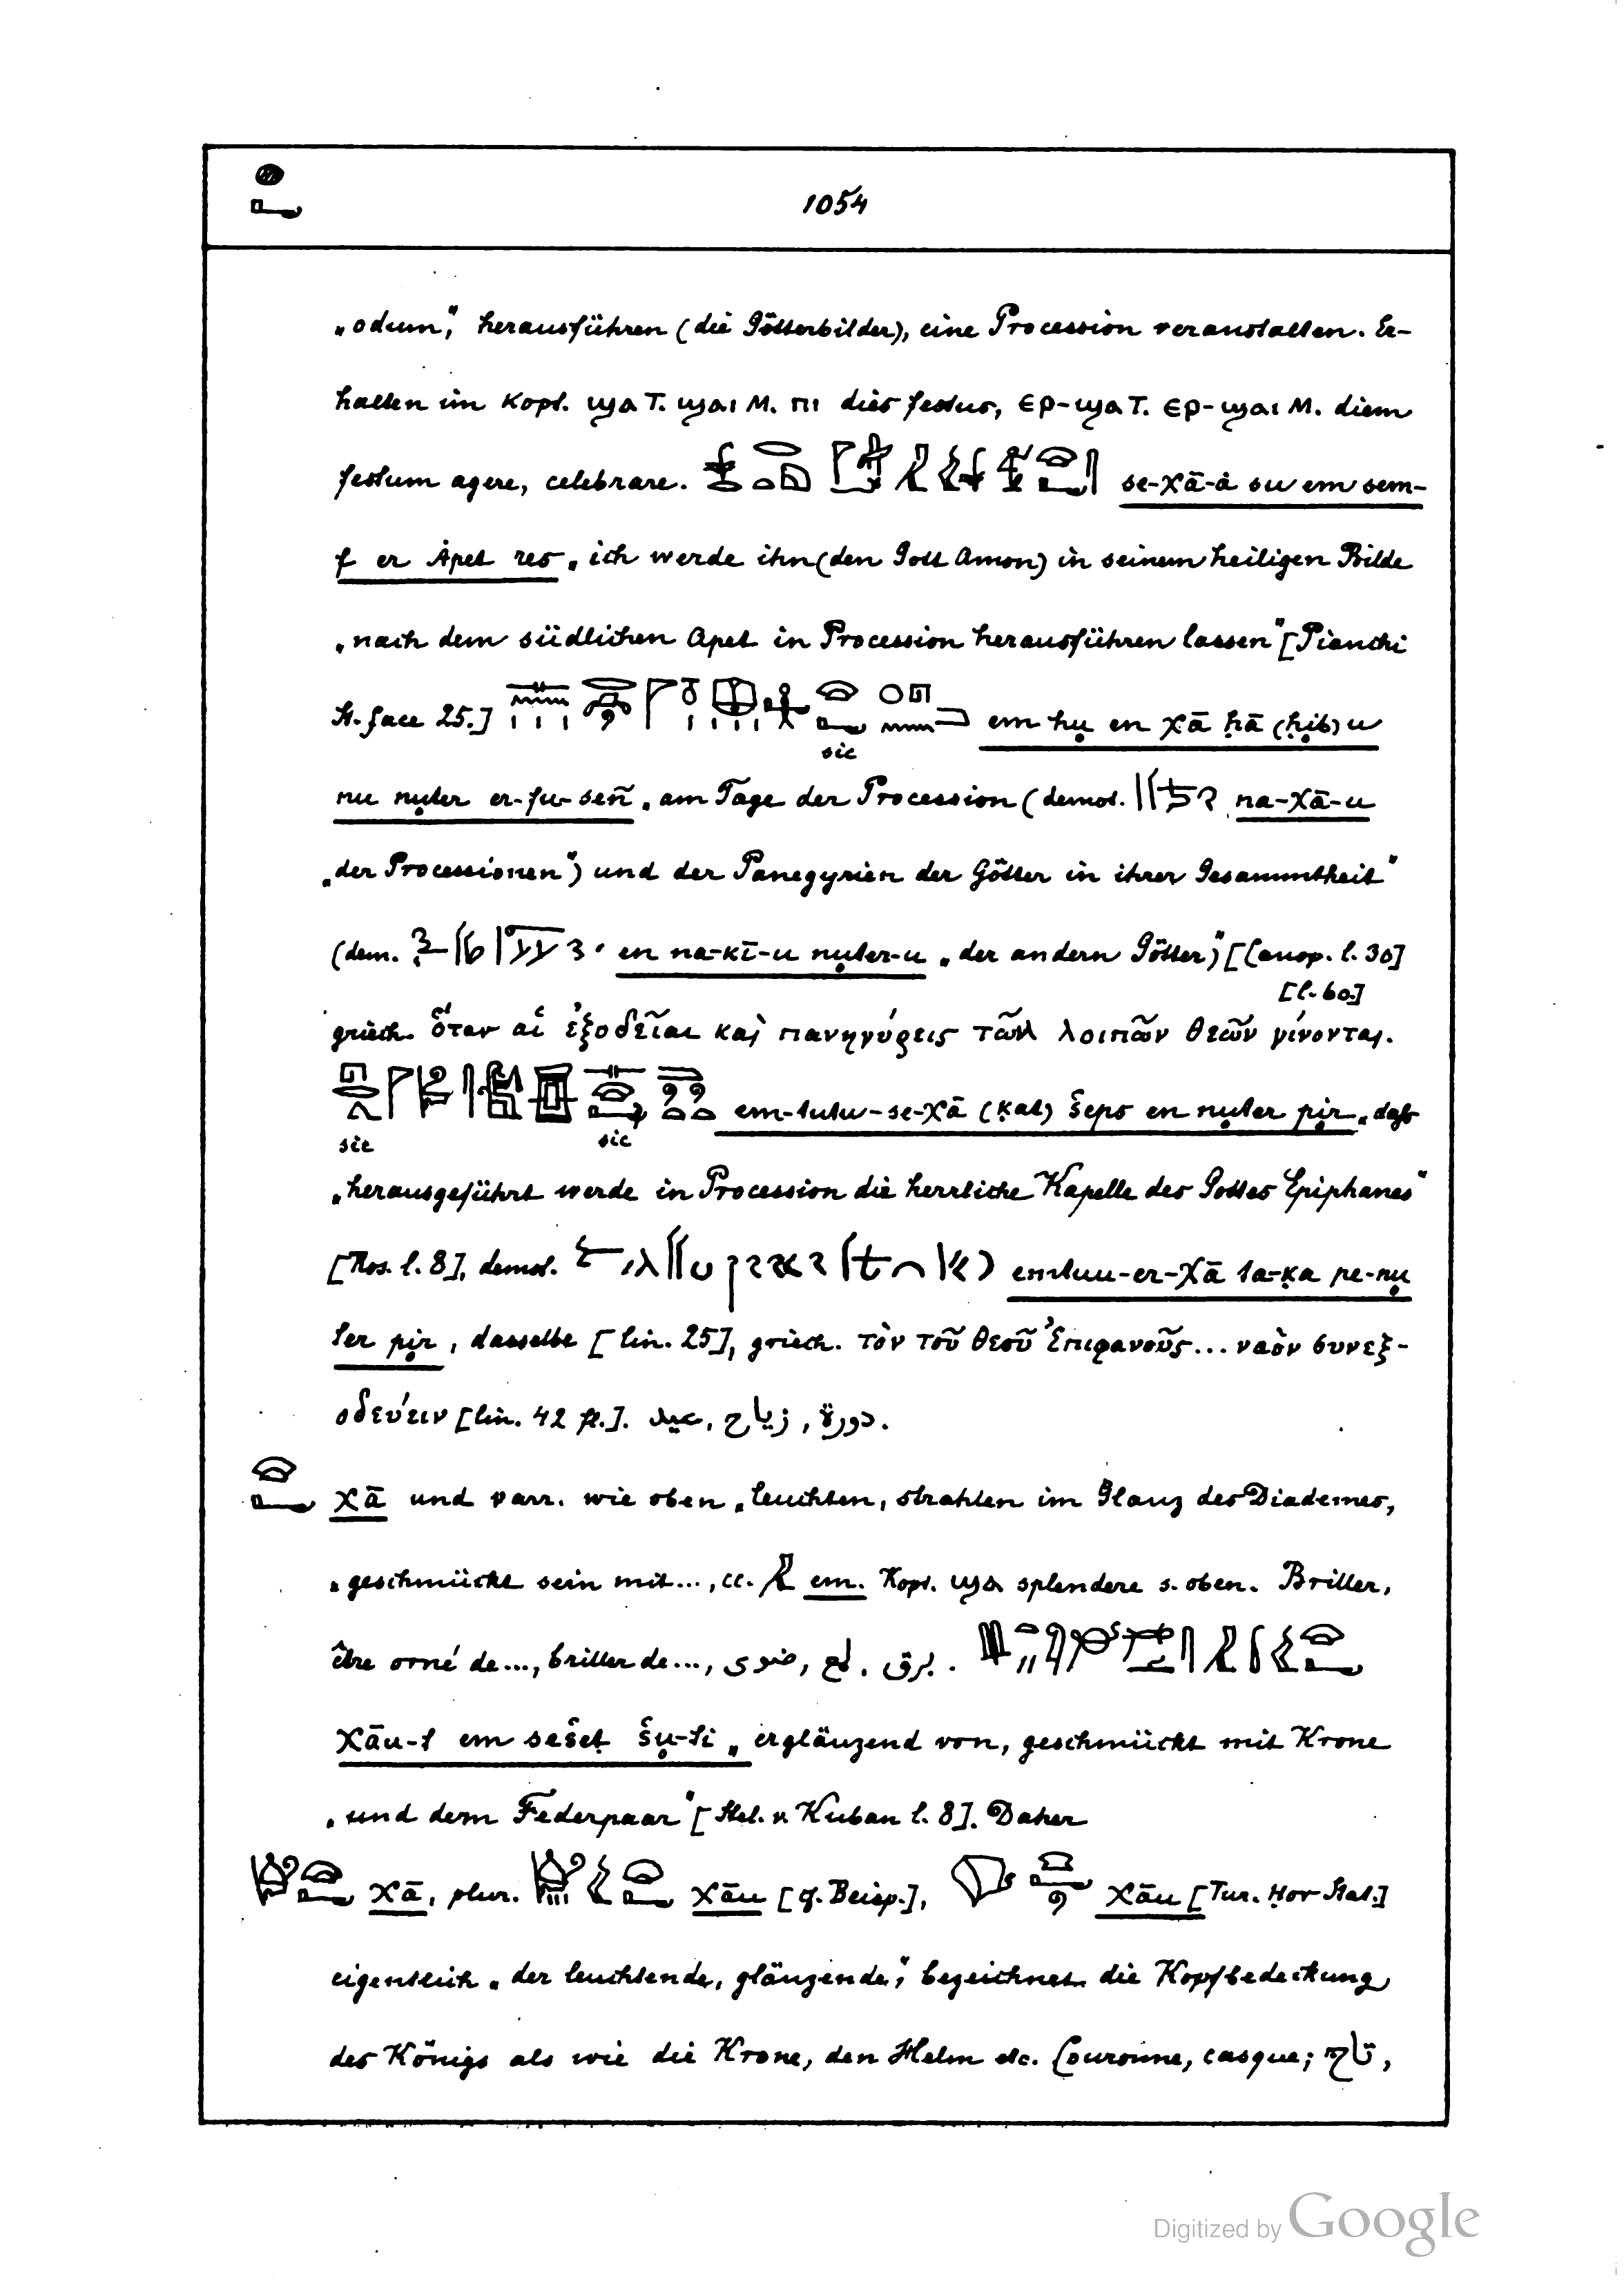 1054
„odum“, herausführen (die Götterbilder), eine Procession veranstalten. Er-
halten im Kopt. ϣⲁ T. ϣⲁⲓ M. ⲡⲓ dies festus, ⲉⲣ-ϣⲁ T. ⲉⲣ-ϣⲁⲓ M. diem
festum agere, celebrare. se-χā-à su em sem-
f er Àpet res „ich werde ihn (den Gott Amon) in seinem heiligen Bilde
„nach dem südlichen Apet in Procession herausführen lassen“ [Pianchi
St. face 25.] em hụ en χā ḥā (ḥib) u
sic
nu nụter er-fu-señ „am Tage der Procession (demot. na-χā-u
„der Processionen“) und der Panegyrien der Götter in ihrer Gesammtheit“
(dem. en na-kī-u nụter-u „der andern Götter)“ [Canop. l. 30]
[l. 60.]
griech. ὅταν αἱ ἐξοδεῖαι καὶ πανηγύρεις τῶν λοιπῶν θεῶν γίνονται.
em-tutu-se-χā (ḳat) šeps en nụter pịr „daß
sic sic
„herausgeführt werde in Procession die herrliche Kapelle des Gottes Epiphanes“
[Ros. l. 8], demot. emtuu-er-χā ta-ḳa pe-nụ
ter pịr, dasselbe [lin. 25], griech. τὸν τοῦ θεοῦ Ἐπιφανοῦς... ναὸν συνεξ-
οδεύειν [lin. 42 fl.]. دورة, زياح, عيد.
χā und varr. wie oben „leuchten, strahlen im Glanz des Diademes,
„geschmückt sein mit..., cc. em. Kopt. ϣⲁ splendere s. oben. Briller,
être orné de..., briller de..., برق, لمع, ضوى.
χāu-t em sešeṭ šụ-ti „erglänzend von, geschmückt mit Krone
„und dem Federpaar“ [Stel. v. Kuban l. 8]. Daher
χā, plur. χāu [cf. Beisp.], χāu [Tur. Hor Stat.]
eigentlich „der leuchtende, glänzende“, bezeichnet die Kopfbedeckung
des Königs als wie die Krone, den Helm etc. Couronne, casque; تاج,
Digitized by Google